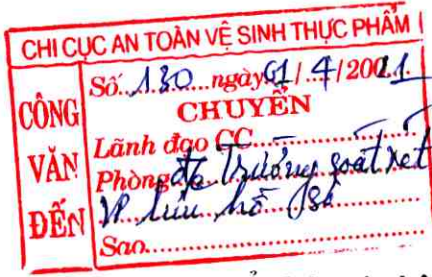 CHI CỤC AN TOÀN VỆ SINH THỰC PHẨM
CÔNG VĂN ĐẾN
Số...130...ngày 01/.4/2001.1.
CHUYỂN
Lãnh đạo CC
Phòng đ/c Trưởng soát xét
VP lưu hồ sơ
Sao